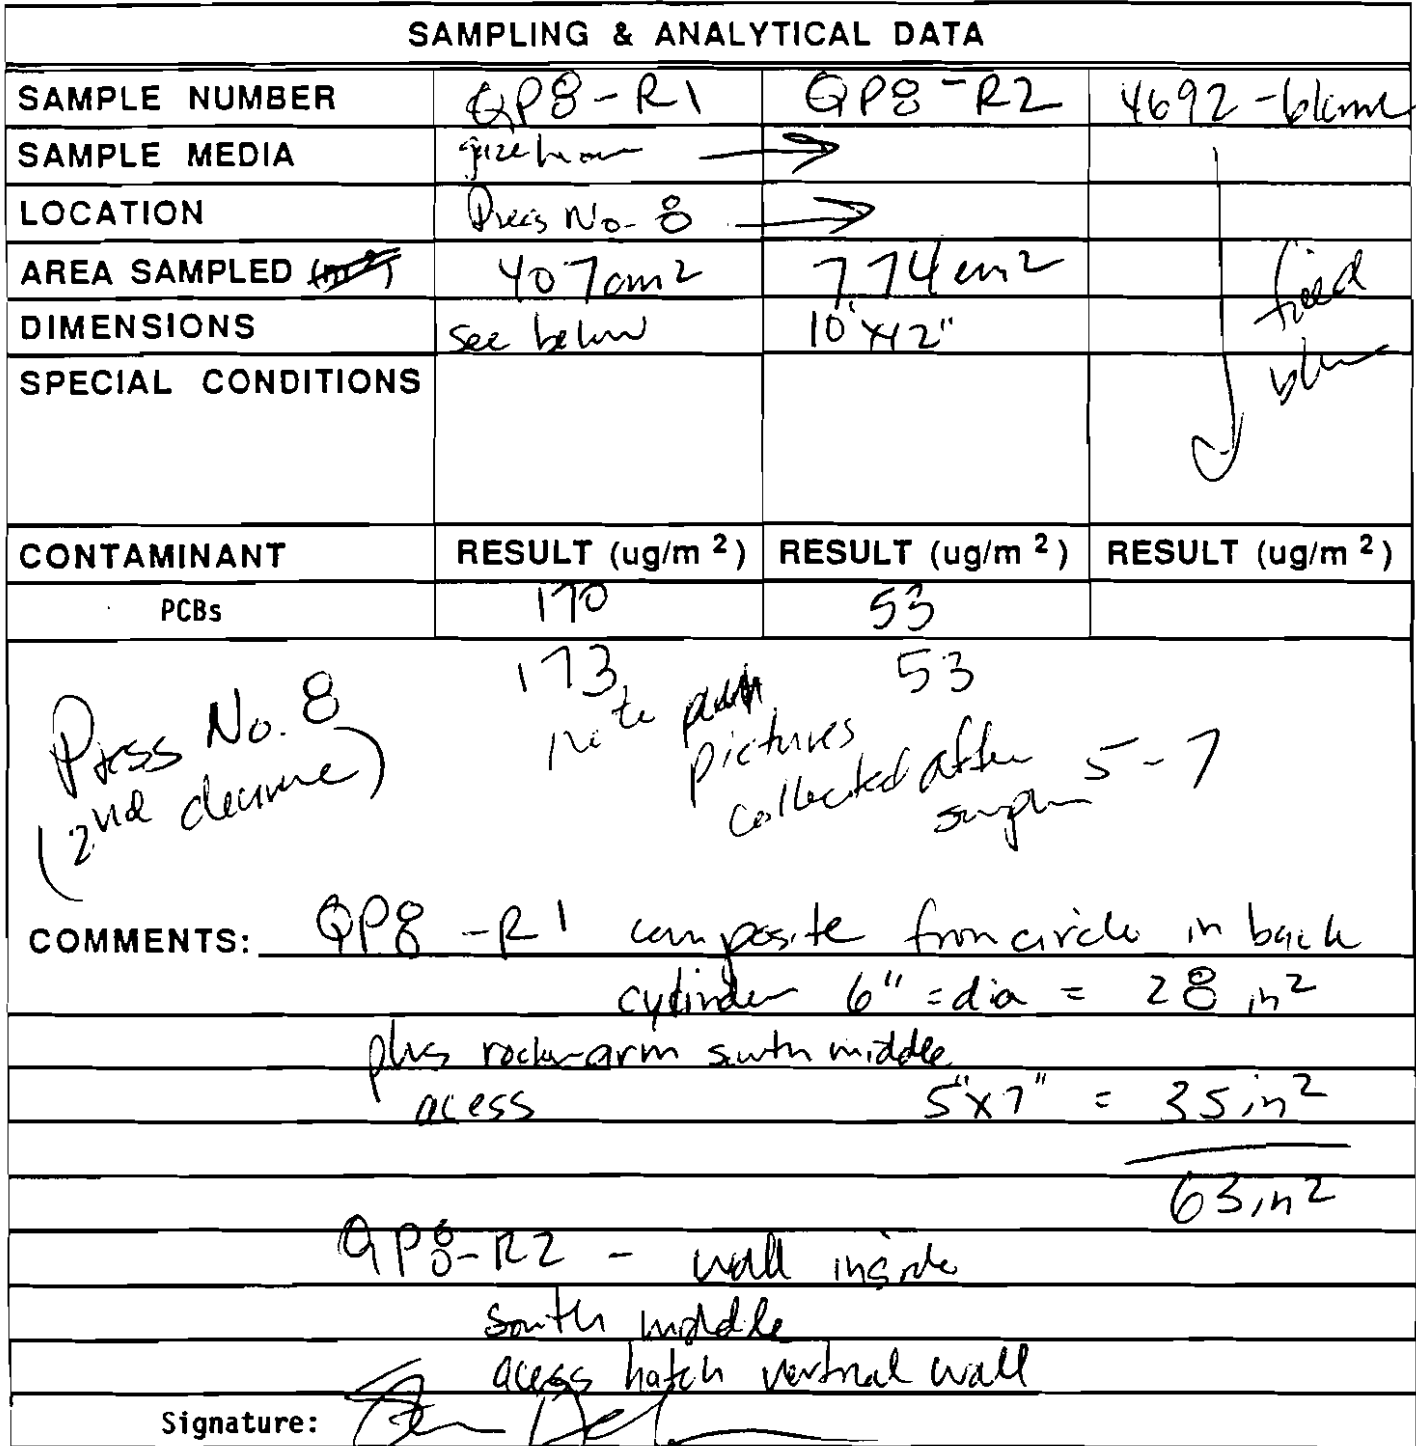 SAMPLING & ANALYTICAL DATA
SAMPLE NUMBER QP8-R1 QP8-R2 4692-
SAMPLE MEDIA
LOCATION Press No. 8
AREA SAMPLED 407cm2 774cm2
DIMENSIONS see below 10"x12"
SPECIAL CONDITIONS
CONTAMINANT RESULT (ug/m 2) RESULT (ug/m 2) RESULT (ug/m 2)
PCBs 170 53
173 53
Press No. 8
(2nd
note
pictures
collected after
5-7
COMMENTS: QP8-R1 composite from circle in back
cylinder 6" = dia = 28 in2
plus rocker arm south middle
acess 5"x7" = 35 in2
63 in2
QP8-R2 - wall inside
south middle
acess hatch wall
Signature: